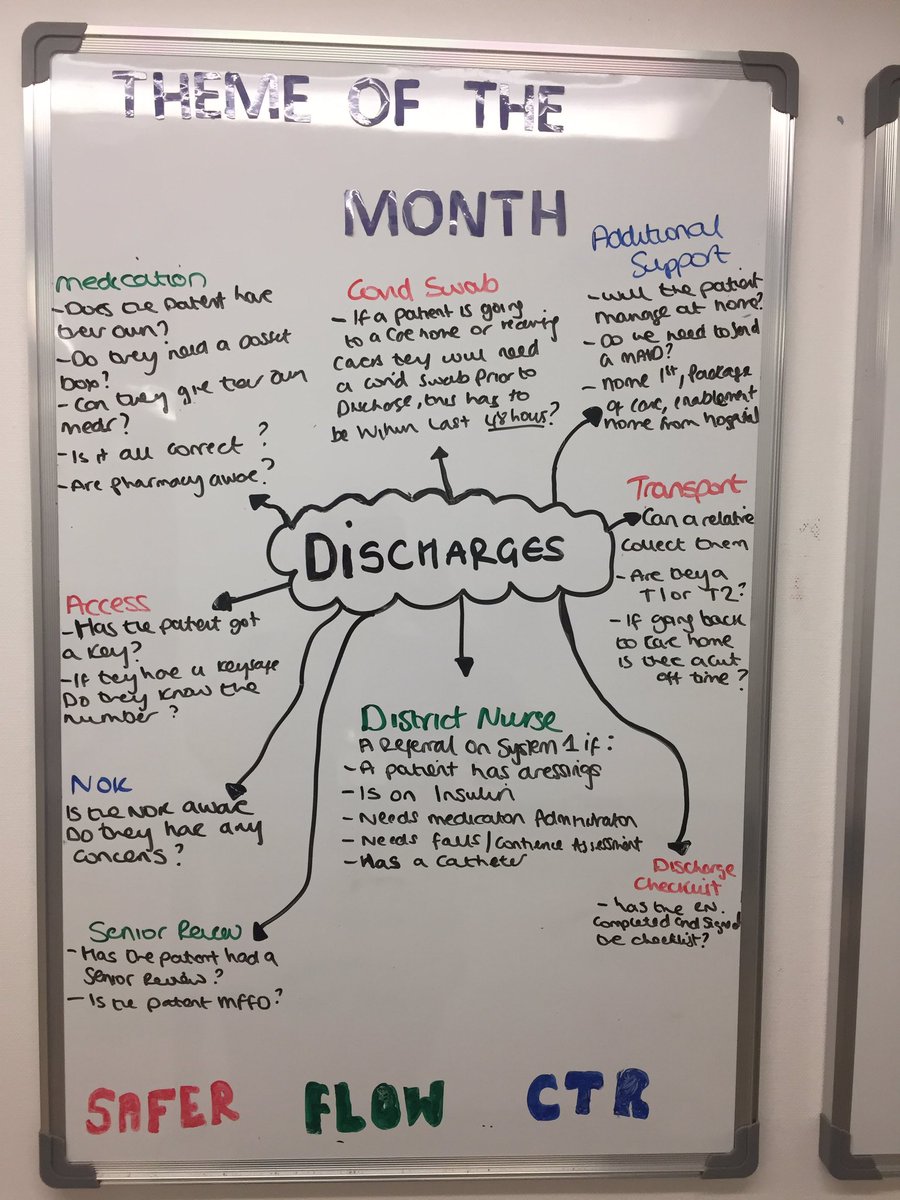 THEME OF THE
MONTH
medication
- Does the patient have
their own?
- Do they need a dosset
box?
- Can they give their own
meds?
- Is it all correct?
- Are pharmacy aware?
Covid Swab
- If a patient is going
to a care home or receiving
cares they will need
a covid swab prior to
Discharge, this has to
be within last 48hours?
Additional
Support
- Will the patient
manage at home?
- Do we need to send
a MAID?
- Home 1st, Package
of care, enablement
home from hospital
DISCHARGES
Transport
- Can a relative
collect them
- Are they a
T1 or T2?
- If going back
to care home
is there a cut
off time?
Access
- Has the patient got
a key?
- If they have a keysafe
Do they know the
number?
District Nurse
A Referral on System 1 if:
- A patient has dressings
- Is on Insulin
- Needs medication Administration
- Needs falls/Continence Assessment
- Has a Catheter
NOK
Is the NOK aware
Do they have any
concerns?
Discharge
Checklist
- has the RN.
completed and signed
the checklist?
Senior Review
- Has the patient had a
Senior Review?
- Is the patient MFFD?
SAFER FLOW CTR